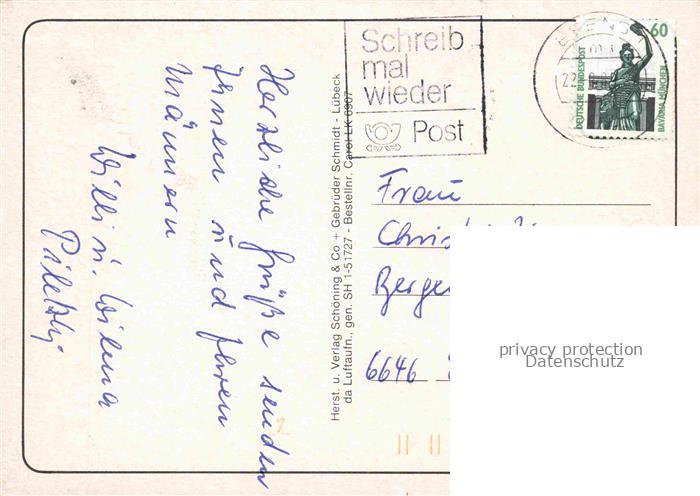 Herzliche Grüße senden
Ihnen und Ihren
Männern
Willi u. Wilma
Herst. u. Verlag Schöning & Co + Gebrüder Schmidt - Lübeck
da Luftaufn., gen. SH 1-51727 - Bestellnr. Carol LK 6907
Schreib
mal
wieder
Post
60
DEUTSCHE BUNDESPOST
BAVARIA MÜNCHEN
Frau
6646
privacy protection
Datenschutz